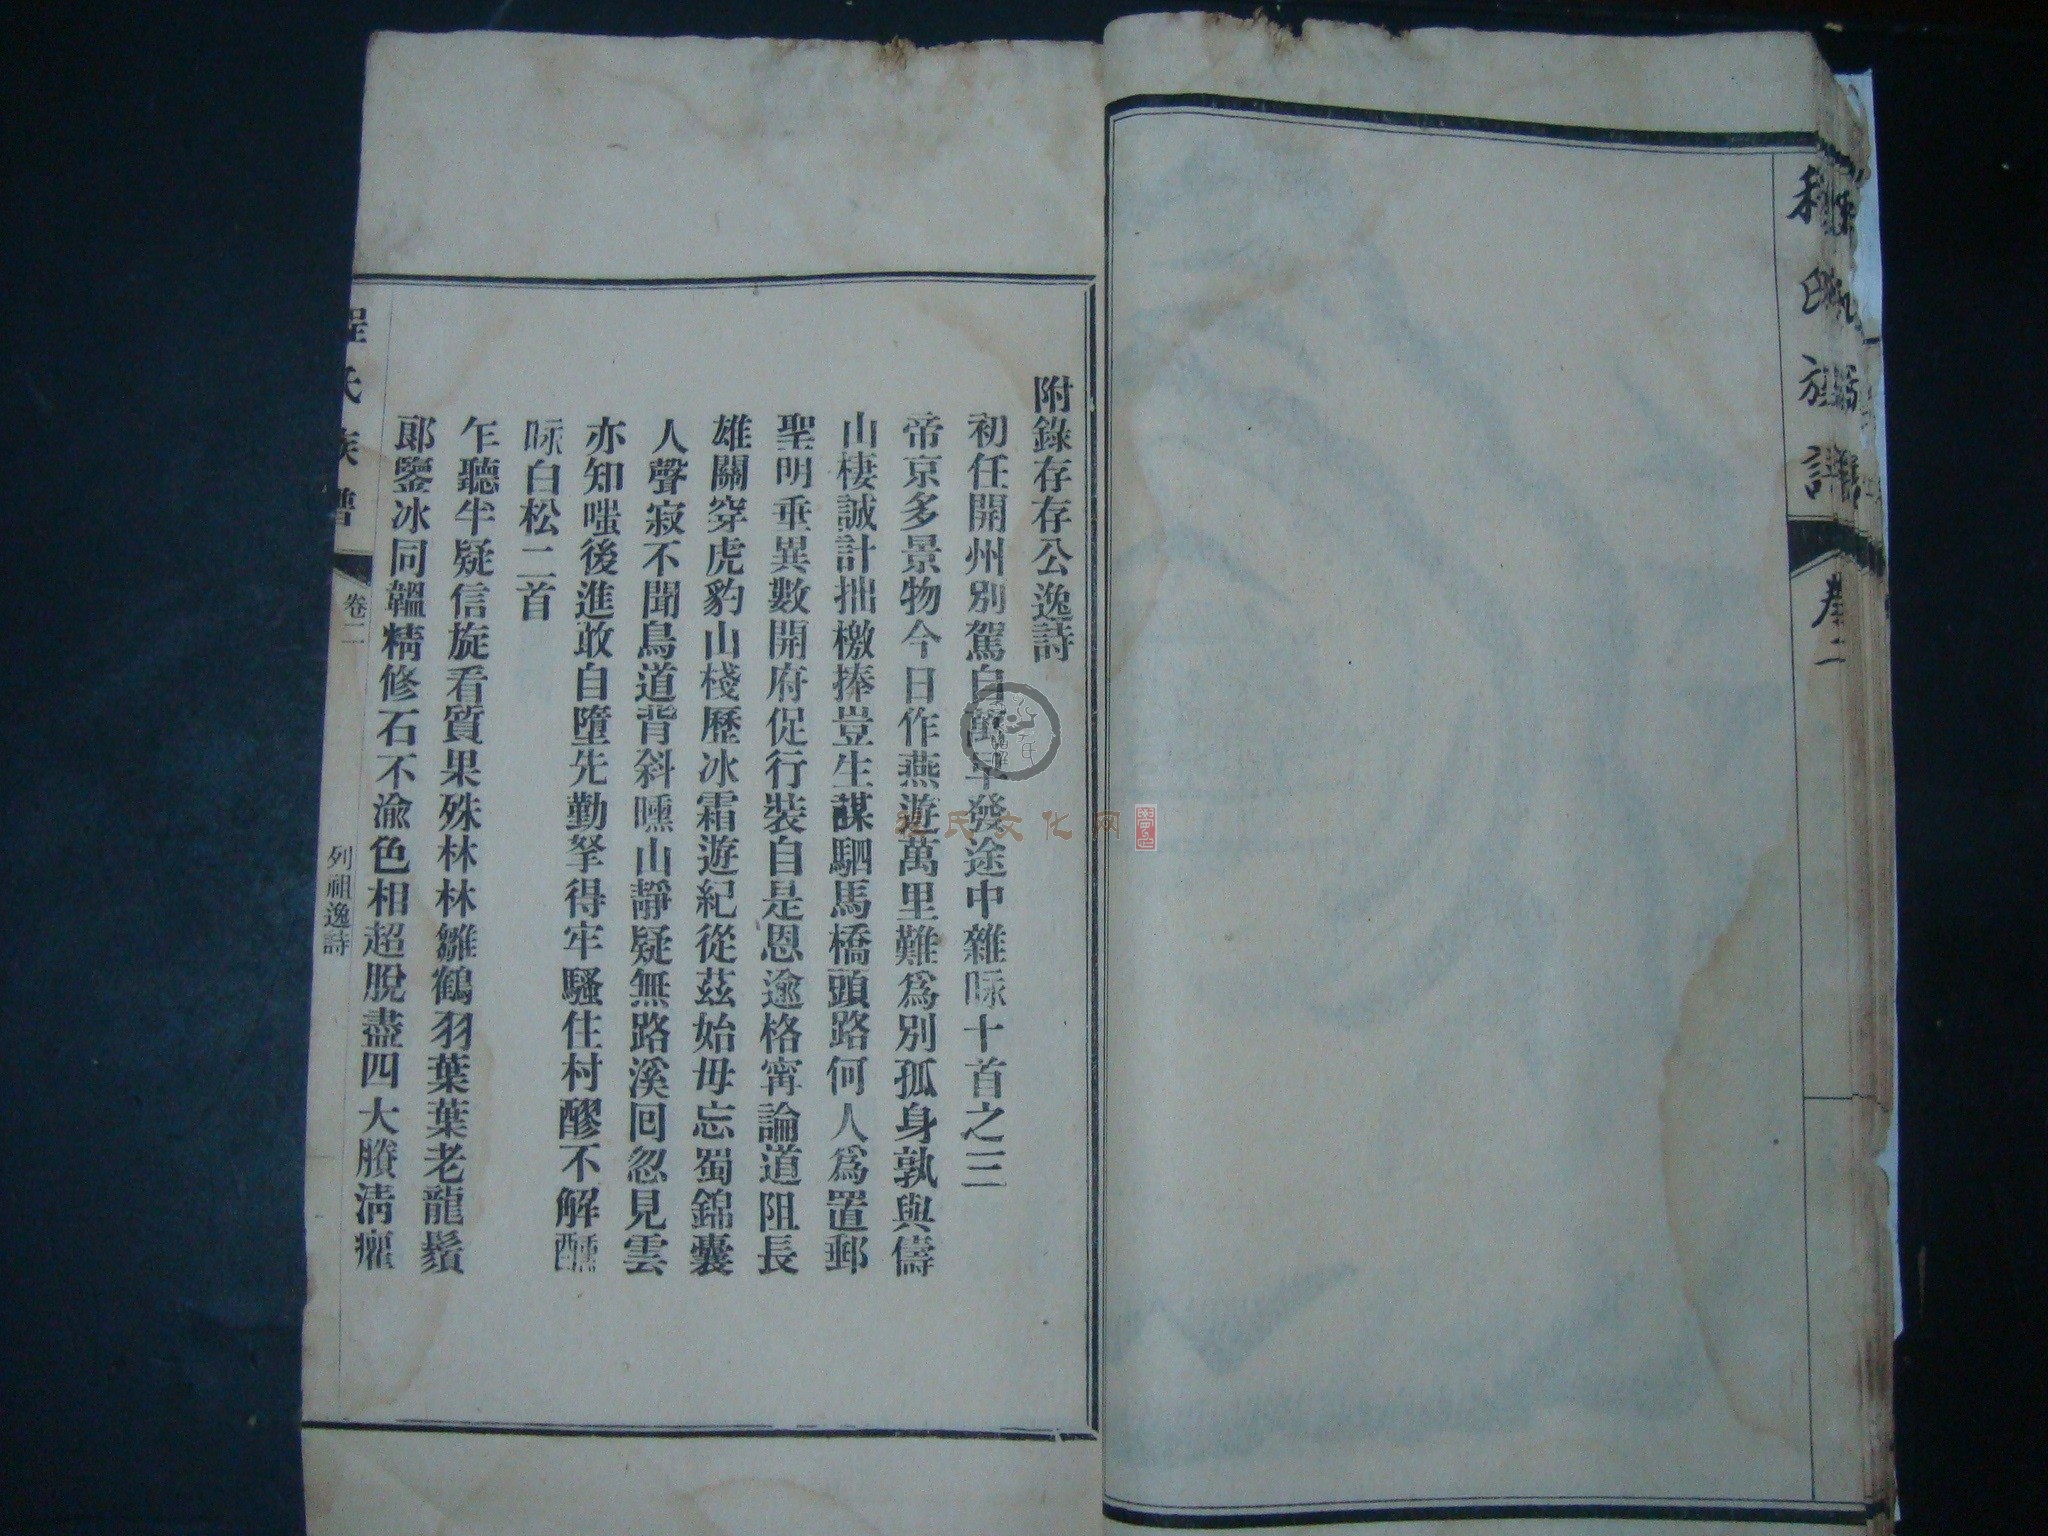 程氏族譜
卷二
附錄存存公逸詩
初任開州別駕自萬早發途中雜咏十首之三
帝京多景物今日作燕遊萬里難為別孤身孰與儔
山棲誠計拙檄捧豈生謀駟馬橋頭路何人為置郵
聖明垂異數開府促行裝自是恩逾格甯論道阻長
雄關穿虎豹山棧歷冰霜遊紀從茲始毋忘蜀錦囊
人聲寂不聞鳥道背斜曛山靜疑無路溪回忽見雲
亦知嗤後進敢自墮先勤拏得牢騷住村醪不解醺
咏白松二首
乍聽半疑信旋看質果殊林林雛鶴羽葉葉老龍鬚
郞鑒冰同韞精修石不渝色相超脫盡四大賸淸癯
程氏族譜
卷二
列祖逸詩
程氏文化网